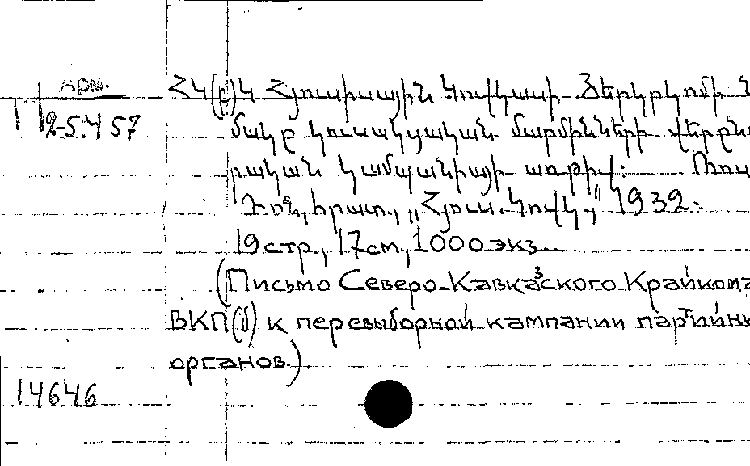 Арм.
ՀԿ(բ)Կ Հյուսիսային Կովկասի Յերկրկոմի
2-5.457
մակը կուսակցական մարմինների վերըն
րական կամպանիայի առթիվ:
հրատ., „Հյուս. Կովկ.„ 1932.
19 стр., 17 см, 1000 экз.
(Письмо Северо-Кавказского Крайкома
ВКП(б) к перевыборной кампании партийны
органов.)
14646